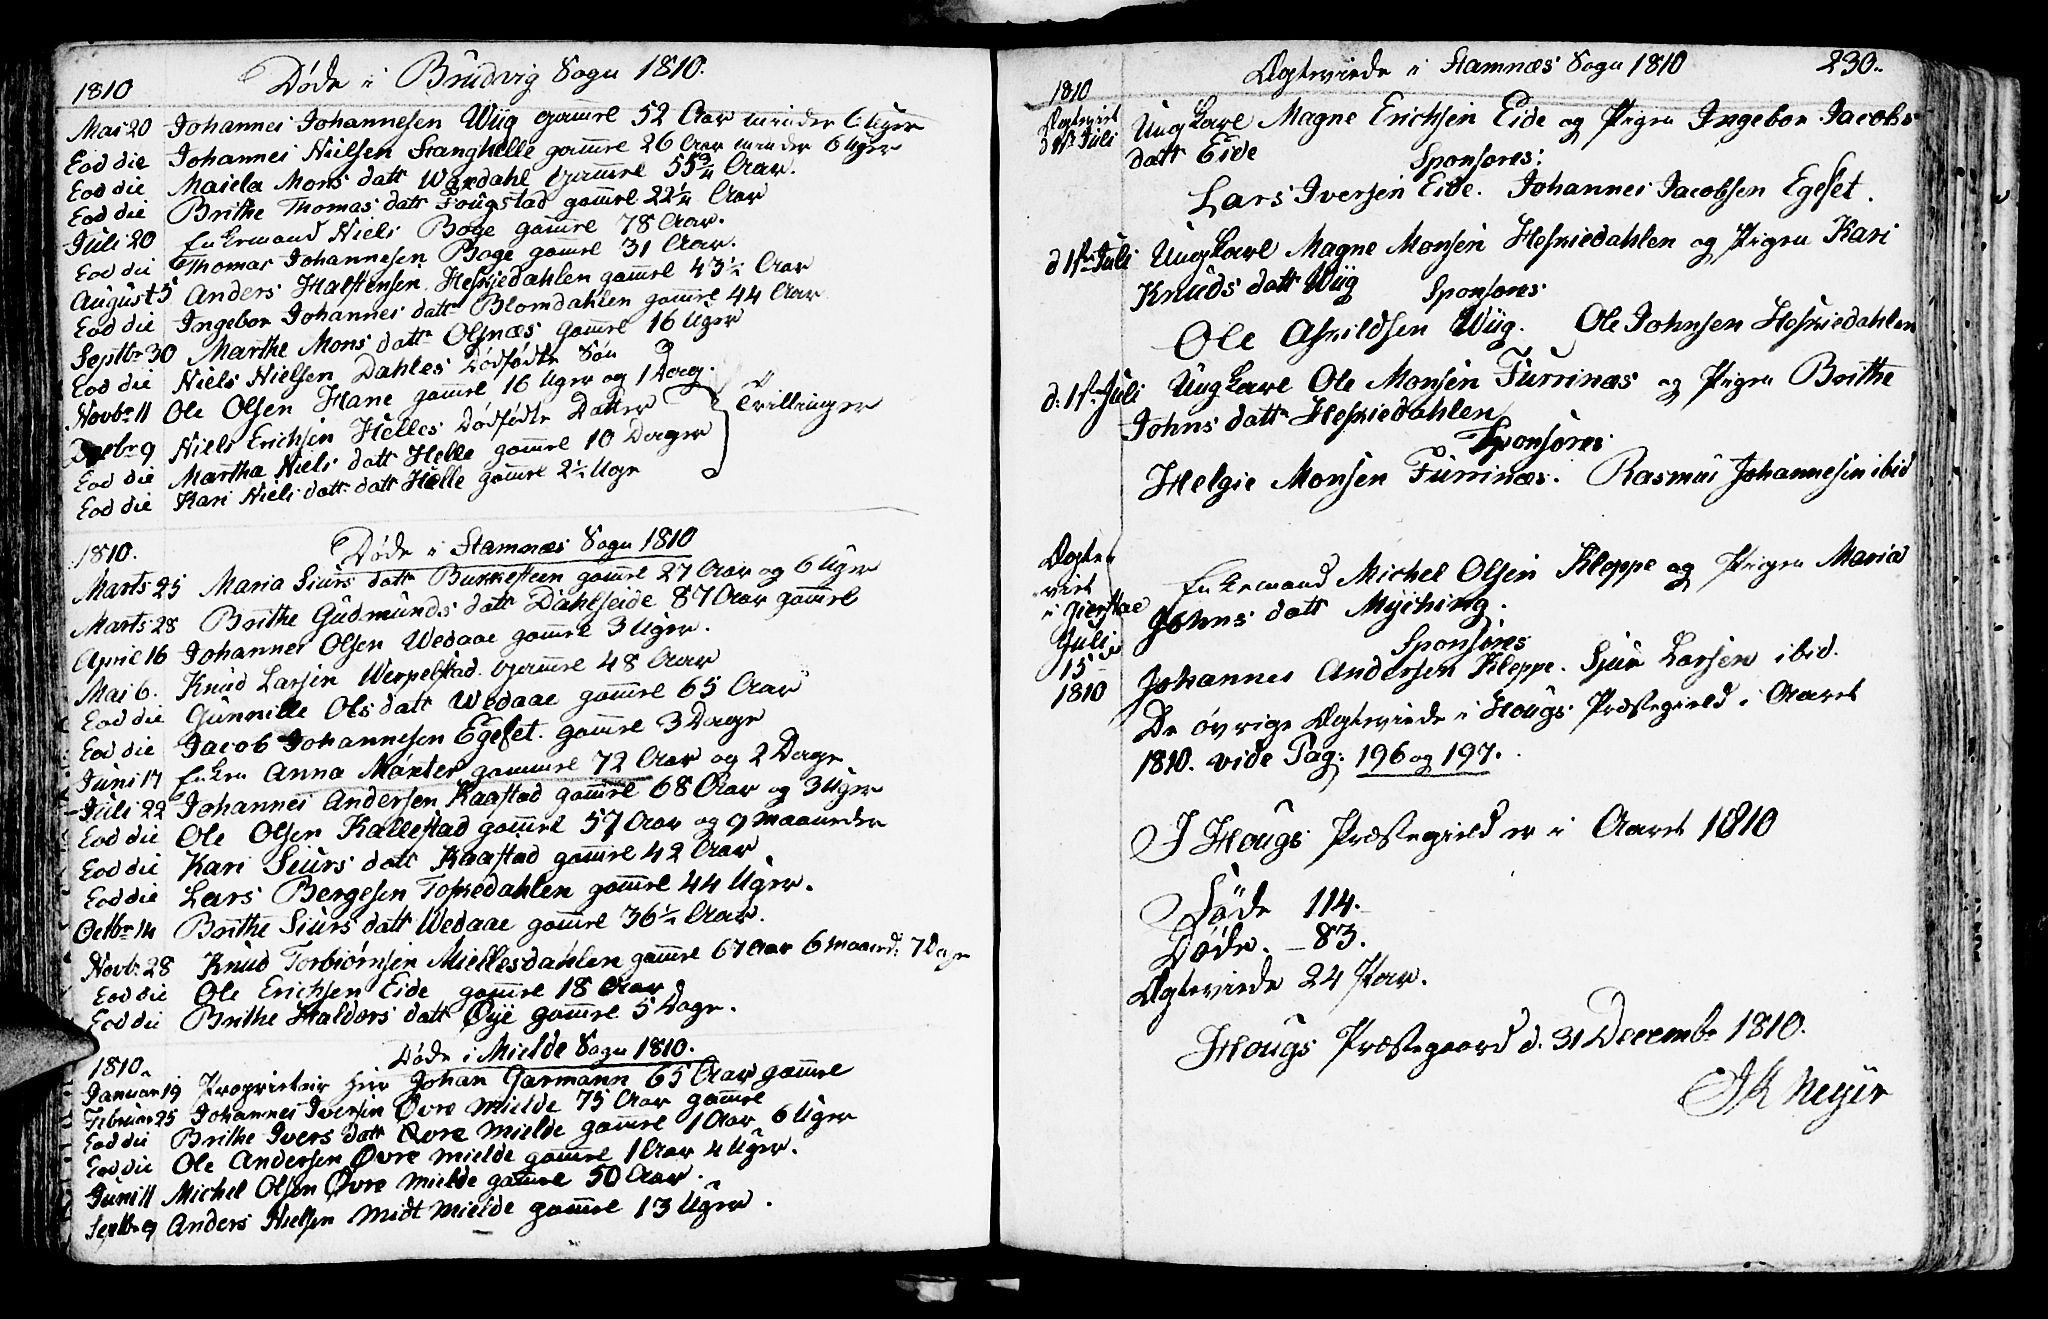 1810 Døde i Brudvig Sogn 1810.
Mai 20 Johannes Johannesen Wüg gamel 52 Aar minder 6 Uger
Eod die Johannes Nielsen Stanghelle gamel 26 Aar minder 6 Uger
Eod die Mons datt Wardahl gamel 55¾ Aar.
Eod die Brithe Thomas datt Fougstad gamel 22¼ Aar
Juli 20 Enkemand Niels Boge gamel 78 Aar.
Eod die Thomas Johannesen Boge gamel 31 Aar.
August 5 Anders Halstensen Hesjedahlen gamel 43½ Aar
Eod die Ingebor Johannes datt Blomdahlen gamel 44 Aar
Septbr 30 Marthe Mons datt Olsnæs gamel 16 Uger
Eod die Niels Nielsen Dahles Dødfødte Søn
Novbr 11 Ole Olsen Hane gamel 16 Uger og 1 Dag.
Decbr 9 Niels Erichsen Helles Dødfødte Datter
Trillinger
Eod die Martha Niels datt Helle gamel 10 Dager
Eod die Kari Niels datt datt Helle gamel 2½ Uge
1810. Døde i Stamnæs Sogn 1810
Marts 25 Maria Siurs datt Bukkesteen gamel 27 Aar og 6 Uger
Marts 28 Brithe Gudmunds datt Dahlseide 87 Aar gamel
April 16 Johannes Olsen Wedaae gamel 3 Uger.
Mai 6. Knud Larsen Werpelstad gamel 48 Aar
Eod die Gunnille Ols datt Wedaae gamel 65 Aar
Eod die Jacob Johannesen Egeset. gamel 3 Dage
Juni 17 Enken Anna Maxter gammel 72 Aar og 2 Dage
Juli 22 Johannes Andersen Kaastad gamel 68 Aar og 3 Uger
Eod die Ole Olsen Kallestad gamel 57 Aar og 9 maaneder
Eod die Kari Siurs datt Kaastad gamel 42 Aar
Eod die Lars Bergesen Toskedahlen gamel 44 Uger.
Octbr 14 Brithe Siurs datt Wedaae gamel 36½ Aar.
Novb: 28 Knud Torbiørnsen Miellesdahlen gamel 67 Aar 6 maaned: 7 Dage
Eod die Ole Erichsen Eide gamel 18 Aar
Eod die Brithe Haldors datt Øye gamel 5 Dage.
1810. Døde i Mielde Sogn 1810.
Januar 19 Proprietair Herr Johan Garmann 65 Aar gamel
Februar 25 Johannes Iversen Øvre Mielde 75 Aar gamel
Eod die Brithe Ivers datt Øvre Mielde gamel 1 Aar 6 Uger
Eod die Ole Andersen Øvre Mielde gamel 1 Aar 4 Uger.
Juni 11 Michel Olsen Øvre Mielde gamel 50 Aar.
Septbr 9 Anders Nielsen Midt Mielde gamel 13 Uger.
Ægteviede i Stamnæs Sogn 1810 230.
1810
Ægteviet
d 1ste Juli Ungkarl Magne Erichsen Eide og Pigen Ingebor Jacobs
datt Eide Sponsores:
Lars Iversen Eide. Johannes Jacobsen Egeset.
d 1ste Juli Ungkarl Magne Monsen Heskiedahlen og Pigen Kari
Knuds datt Wüg Sponsores
Ole Askildsen Wüg. Ole Johnsen Heskiedahlen
d. 1ste Juli Ungkarl Ole Monsen Furrinæs og Pigen Brithe
Johns datt Heskiedahlen
Sponsores
Helgie Monsen Furrinæs. Rasmus Johannesen ibid
Ægte
viet
i Gierstae
Juli
15
1810
Enkemand Michel Olsen Kleppe og Pigen Maria
Johns datt Myching.
Sponsores
Johannes Andersen Kleppe. Sjur Larsen ibid.
De øvrige Ægteviede i Hougs Præstegield i Aaret
1810. vide Pag: 196 og 197.
I Hougs Præstegield er i Aaret 1810
Føde 114.
Døde. – 83.
Ægteviede 24 Par.
Hougs Præstegaard d. 31 Decembr 1810.